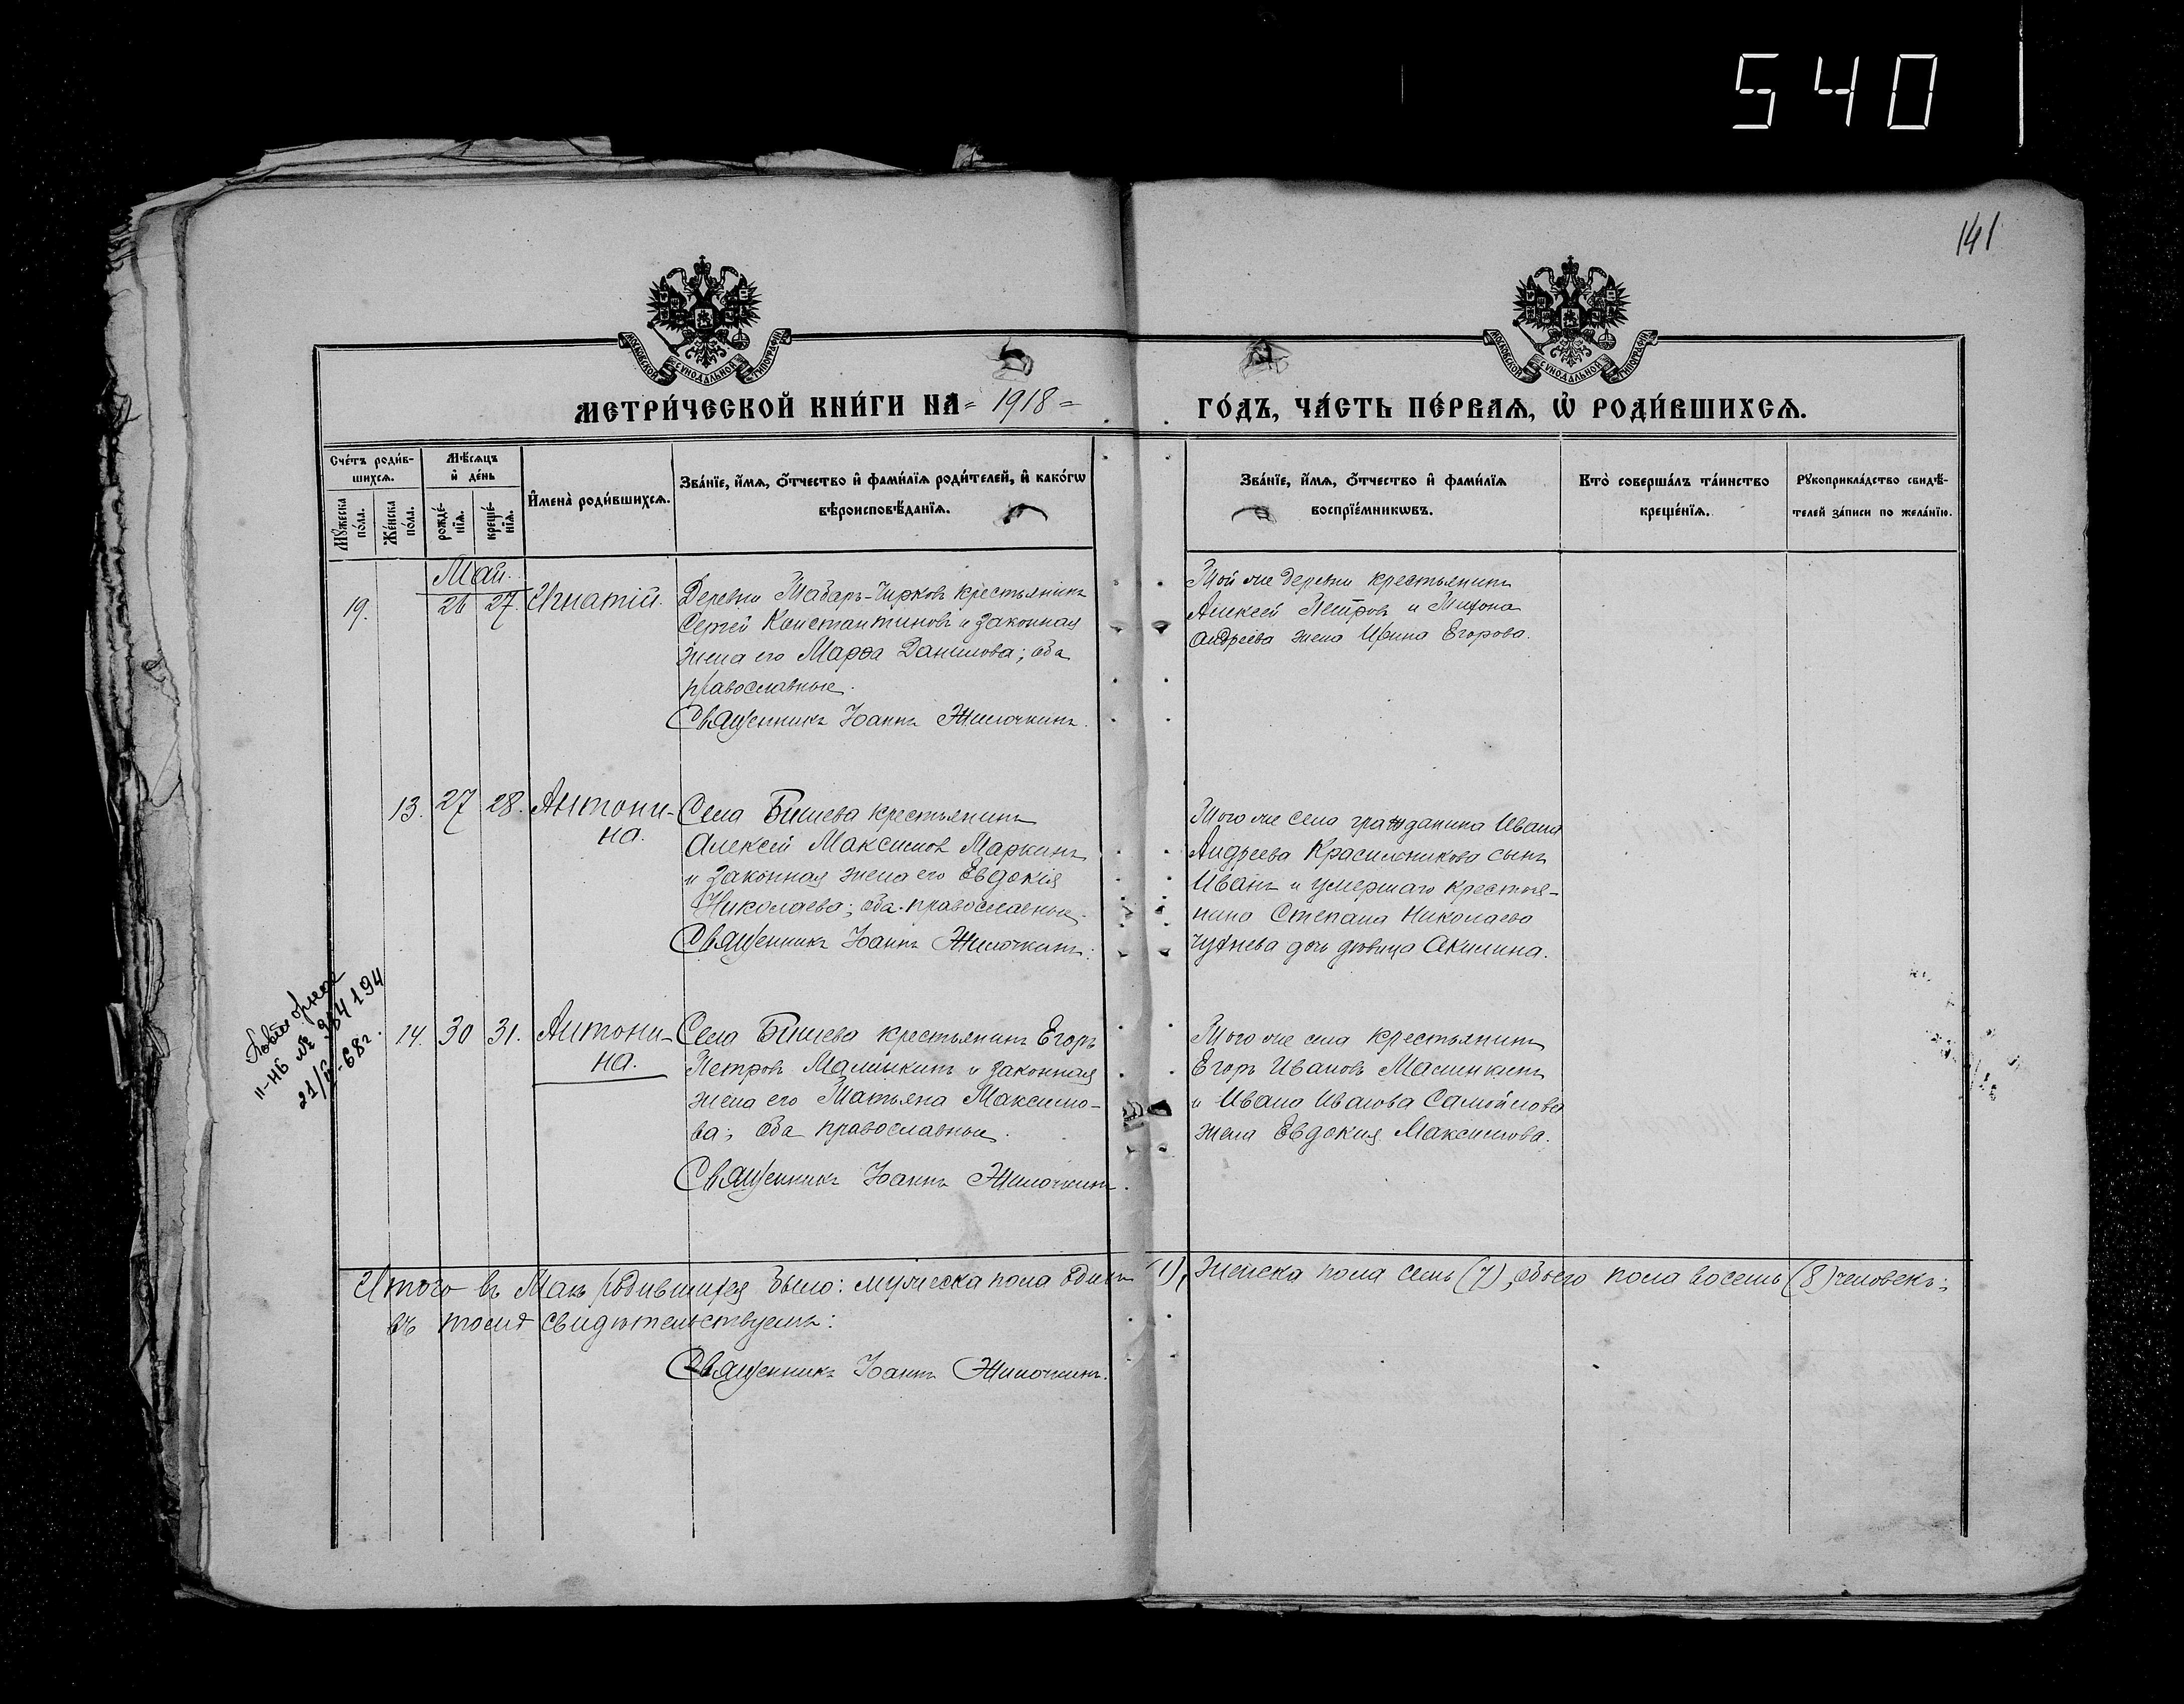 540
141
МОСКОВСКОЙ СѴНОДАЛЬНОЙ ТИПОГРАФІИ
МОСКОВСКОЙ СѴНОДАЛЬНОЙ ТИПОГРАФІИ
МЕТРИ́ЧЕСКОЙ КНИ́ГИ НА = 1918 =
ГО́ДЪ, ЧА́СТЬ ПЕ́РВАѦ, Ѽ РОДИ́ВШИХСѦ.
Сче́тъ роди́в-
шихсѧ.
Мꙋ́жеска
по́ла.
Же́нска
по́ла.
Мѣ́сѧцъ
и҆ де́нь
рожде́-
нїѧ.
креще́-
нїѧ.
И҆мена̀ роди́вшихсѧ.
Зва́нїе, и҆́мѧ, о҆́тчество и҆ фами́лїѧ роди́телей, и҆ како́гѡ
вѣ́роисповѣ́данїѧ.
Зва́нїе, и҆́мѧ, о҆́тчество и҆ фами́лїѧ
воспрїе́мникѡвъ.
Кто̀ соверша́лъ та́инство
креще́нїѧ.
Рꙋкоприкла́дство свидѣ́-
телей за́писи по жела́нїю.
Май.
19. 26 27. Игнатій.
Деревни Чирковъ крестьянинъ
Сергей Константиновъ и законная
жена его Марѳа Данилова; оба
православные.
Священникъ Іоаннъ Жилочкинъ.
Той же деревни крестьянинъ
Алексей Петровъ и Тихона
Андреева жена Ирина Егорова.
13. 27 28. Антони-
на.
Села Бишева крестьянинъ
Алексей Максимов Маркинъ
и законная жена его Евдокія
Николаева; оба православные.
Священникъ Іоаннъ Жилочкинъ.
Того же села гражданина Ивана
Андреева Красильникова сынъ
Иванъ и умершаго крестья-
нина Степана Николаева
дочь девица Акилина.
Повторное
II-НБ № 364194
21/V-68г.
14. 30 31. Антони-
на.
Села Бишева крестьянинъ Егоръ
Петровъ Малышкинъ и законная
жена его Татьяна Максимо-
ва; оба православные.
Священникъ Іоаннъ Жилочкинъ.
Того же села крестьянинъ
Егоръ Ивановъ
и Ивана Иванова Самойлова
жена Евдокия Максимова.
Итого въ Маѣ родившихся было: мужеска пола одинъ (1), женска пола семь (7), обоего пола восемь (8) человекъ;
въ томъ свидѣтельствуемъ:
Священникъ Іоаннъ Жилочкинъ.